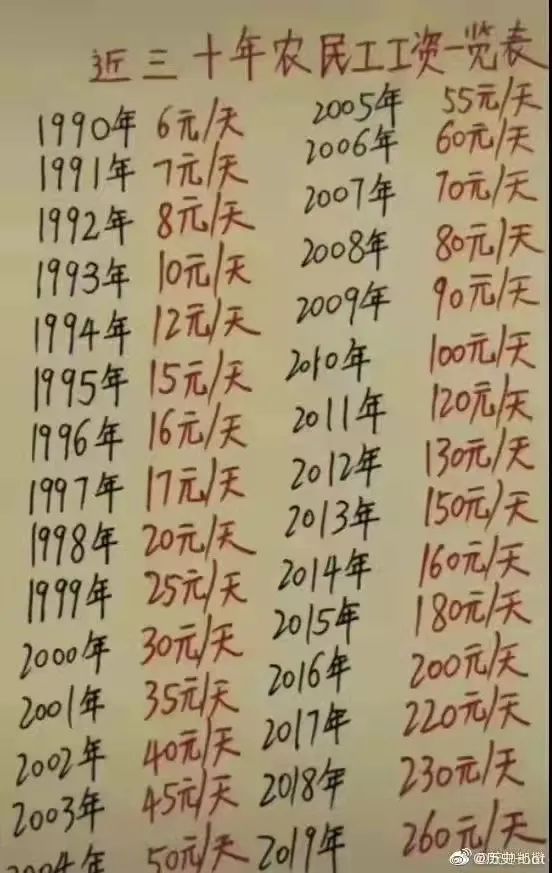 近三十年农民工工资一览表
1990年 6元/天
1991年 7元/天
1992年 8元/天
1993年 10元/天
1994年 12元/天
1995年 15元/天
1996年 16元/天
1997年 17元/天
1998年 20元/天
1999年 25元/天
2000年 30元/天
2001年 35元/天
2002年 40元/天
2003年 45元/天
2004年 50元/天
2005年 55元/天
2006年 60元/天
2007年 70元/天
2008年 80元/天
2009年 90元/天
2010年 100元/天
2011年 120元/天
2012年 130元/天
2013年 150元/天
2014年 160元/天
2015年 180元/天
2016年 200元/天
2017年 220元/天
2018年 230元/天
2019年 260元/天